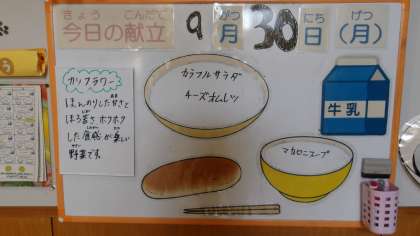 きょう こんだて がつ にち げつ
今日の献立 9月30日(月)
カリフラワー
ほんのりした甘さと
ほろ苦さ ホクホク
した食感が楽しい
野菜です。
カラフルサラダ
チーズオムレツ
牛乳
マカロニスープ